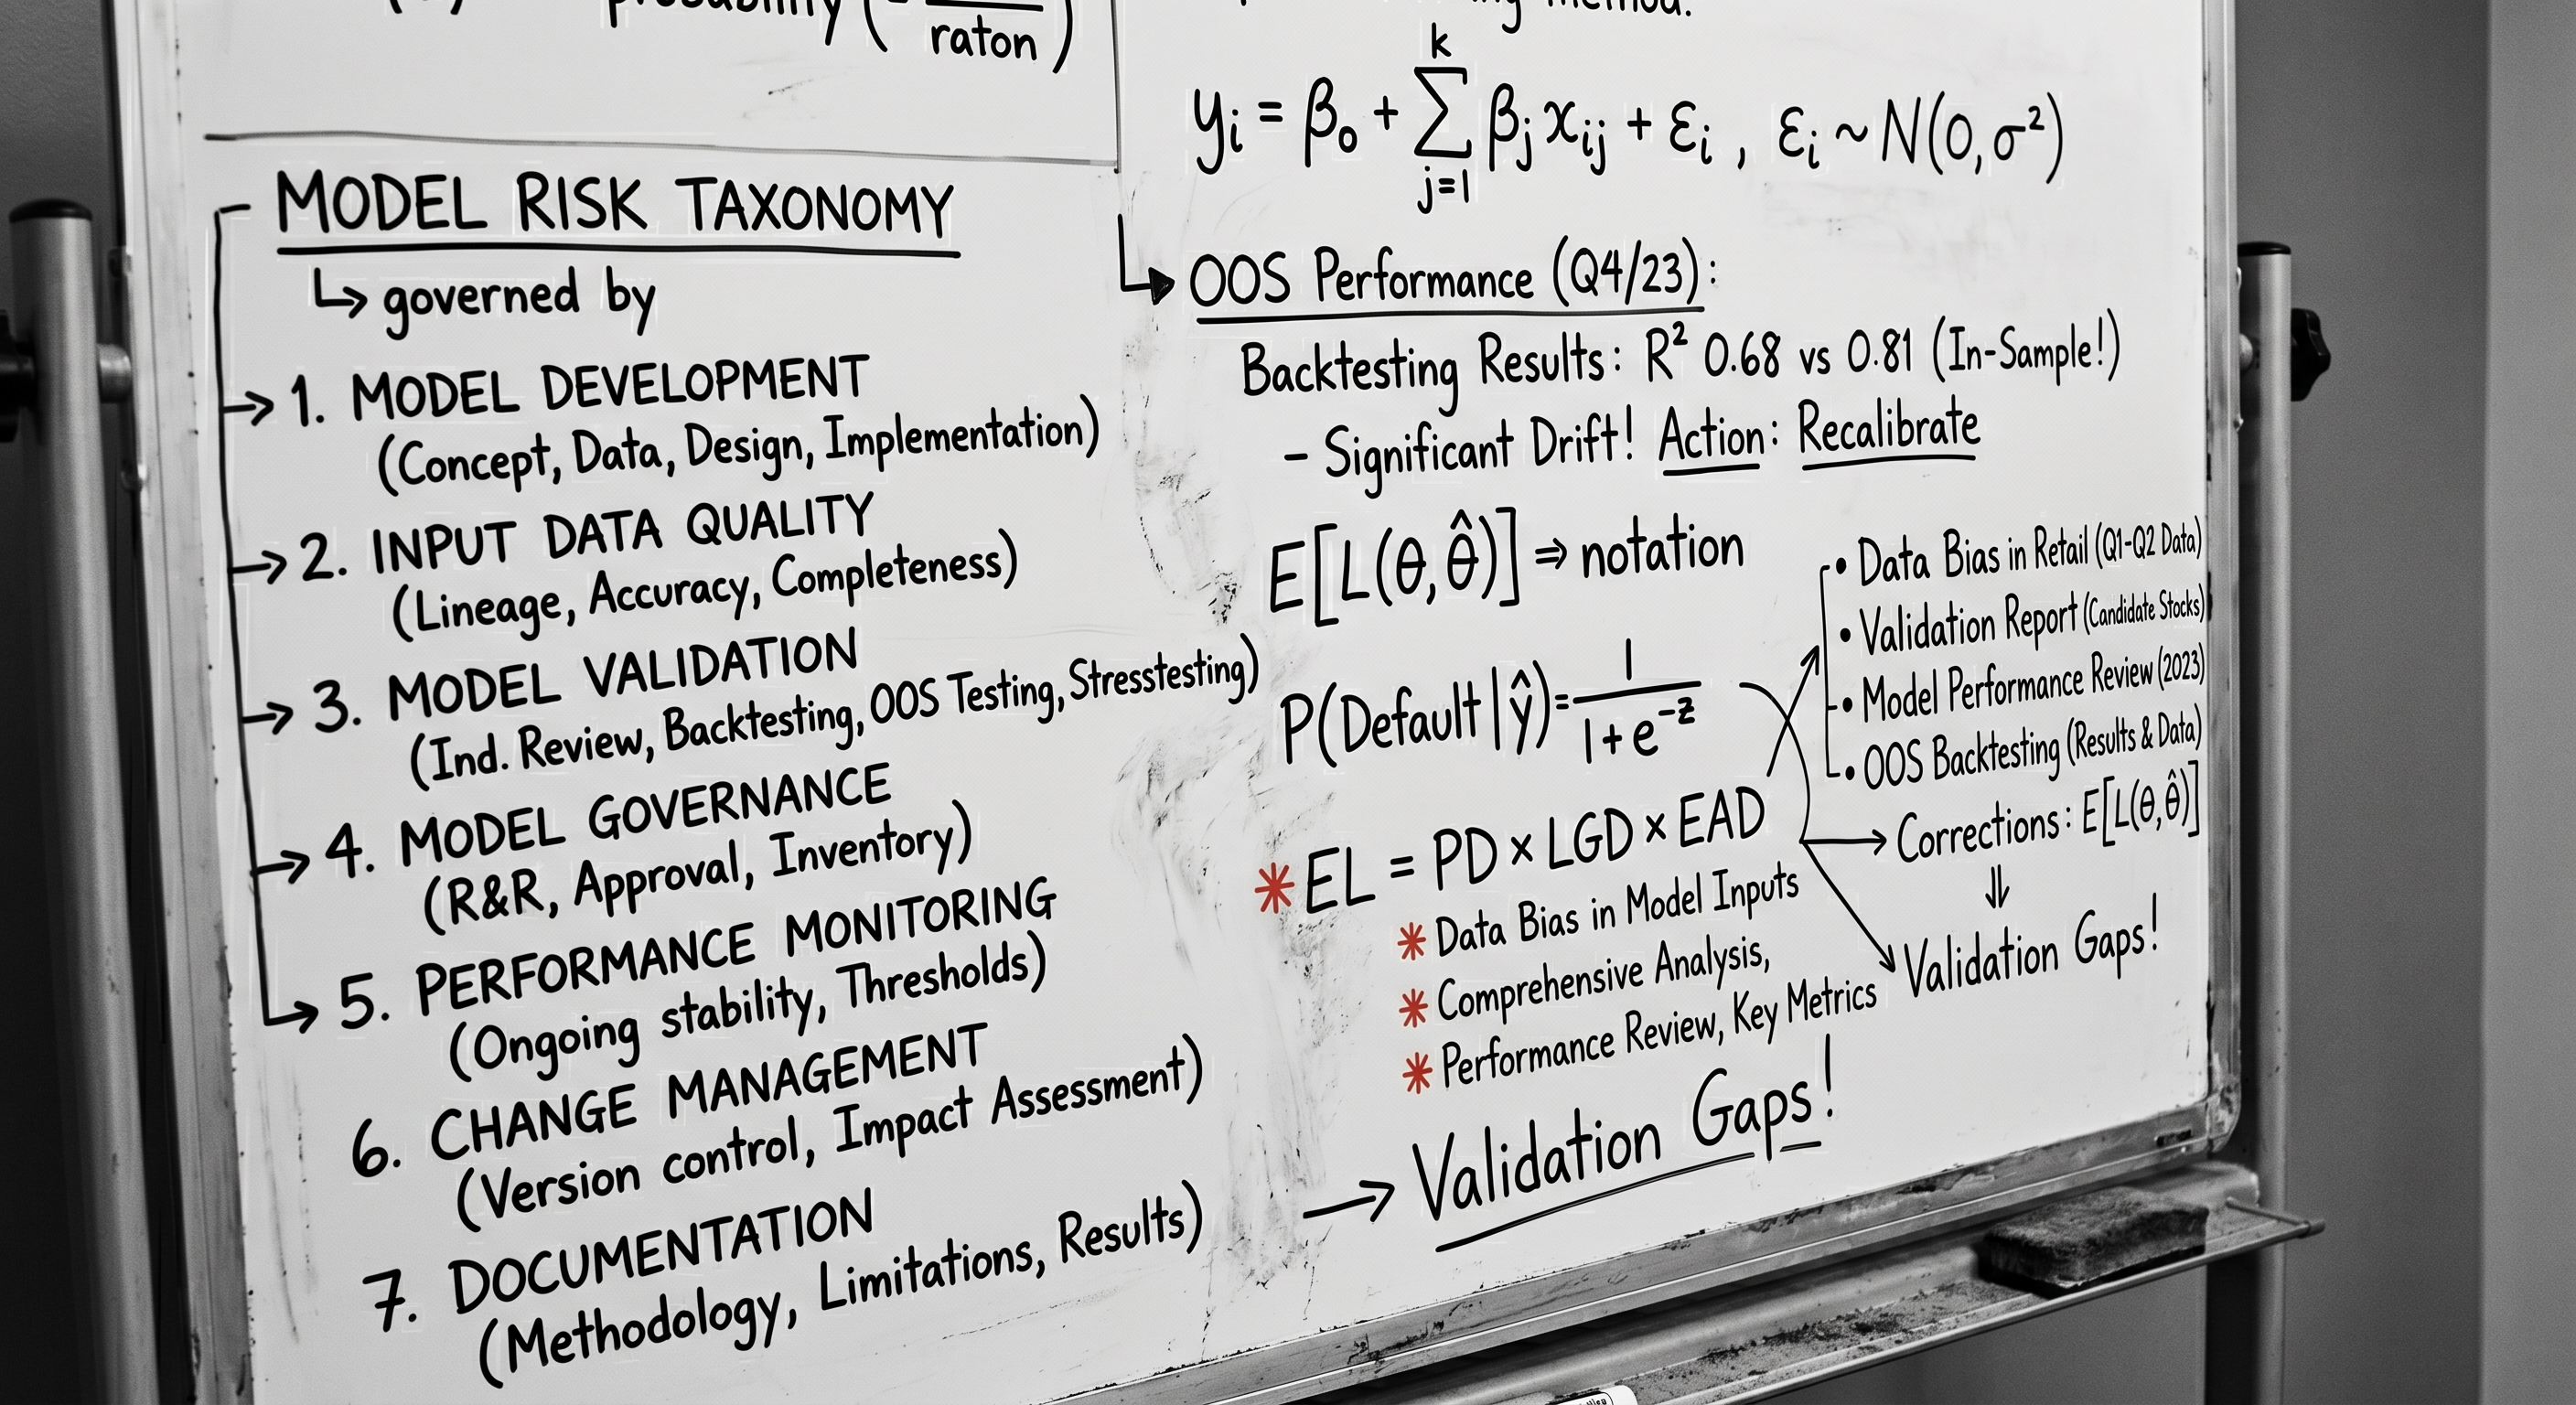 raton )
MODEL RISK TAXONOMY
↳ governed by
→ 1. MODEL DEVELOPMENT
(Concept, Data, Design, Implementation)
→ 2. INPUT DATA QUALITY
(Lineage, Accuracy, Completeness)
→ 3. MODEL VALIDATION
(Ind. Review, Backtesting, OOS Testing, Stresstesting)
→ 4. MODEL GOVERNANCE
(R&R, Approval, Inventory)
→ 5. PERFORMANCE MONITORING
(Ongoing stability, Thresholds)
6. CHANGE MANAGEMENT
(Version control, Impact Assessment)
7. DOCUMENTATION
(Methodology, Limitations, Results)
yᵢ = β₀ + ∑ⱼ₌₁ᵏ βⱼ xᵢⱼ + εᵢ , εᵢ ~ N(0, σ²)
OOS Performance (Q4/23):
Backtesting Results: R² 0.68 vs 0.81 (In-Sample!)
– Significant Drift! Action: Recalibrate
E[L(θ, θ̂)] ⇒ notation
P(Default | ŷ) = 1 / (1 + e^-z)
* EL = PD × LGD × EAD
* Data Bias in Model Inputs
* Comprehensive Analysis,
* Performance Review, Key Metrics
→ Validation Gaps!
• Data Bias in Retail (Q1-Q2 Data)
• Validation Report (Candidate Stocks)
• Model Performance Review (2023)
• OOS Backtesting (Results & Data)
Corrections: E[L(θ, θ̂)]
⇓
Validation Gaps!